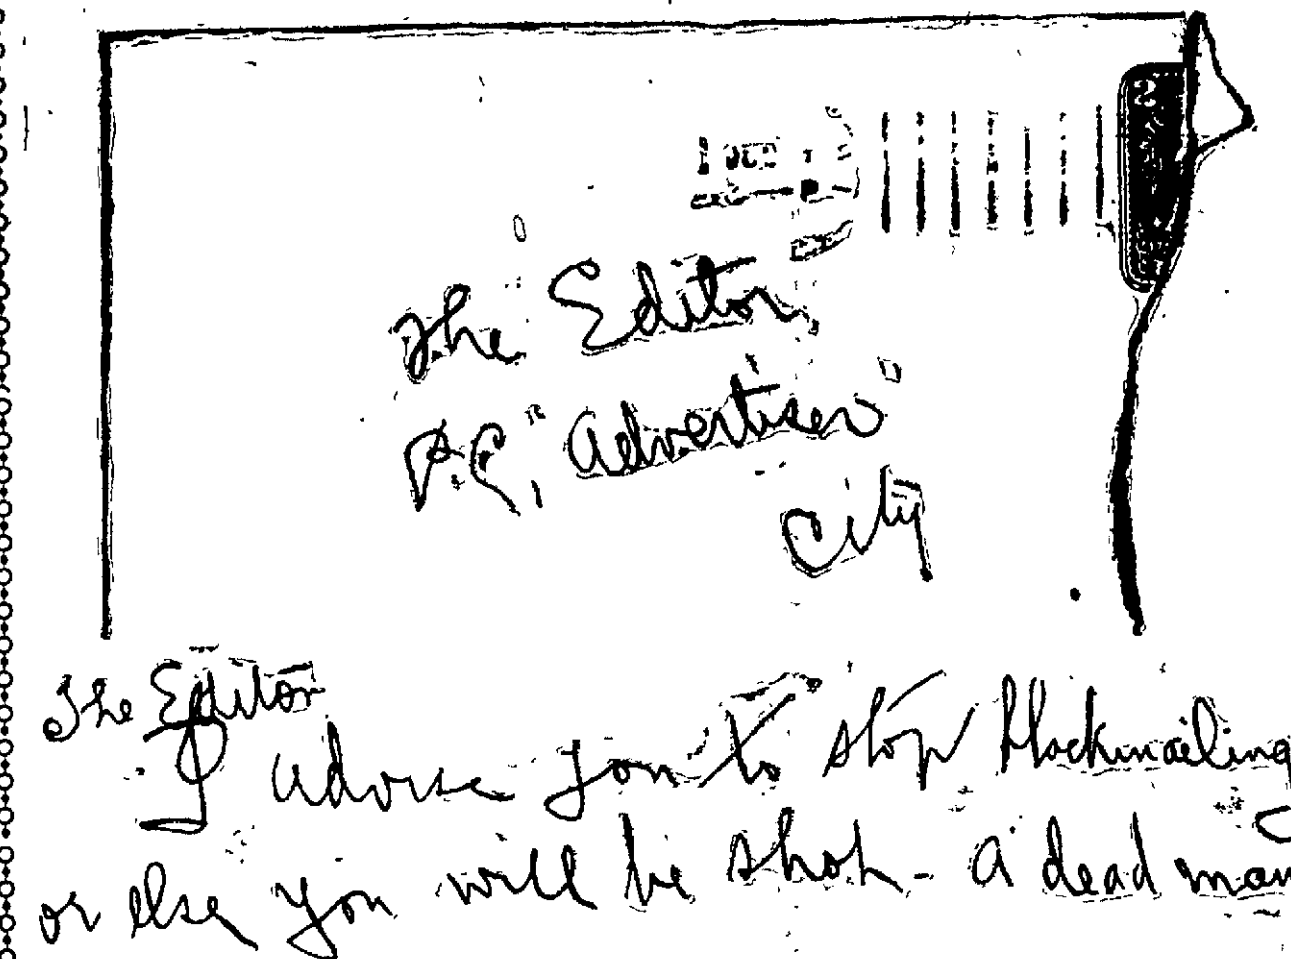 The Editor,
P.C, "Advertiser"
City
The Editor
I advise you to stop blackmailing
or else you will be shot - a dead man